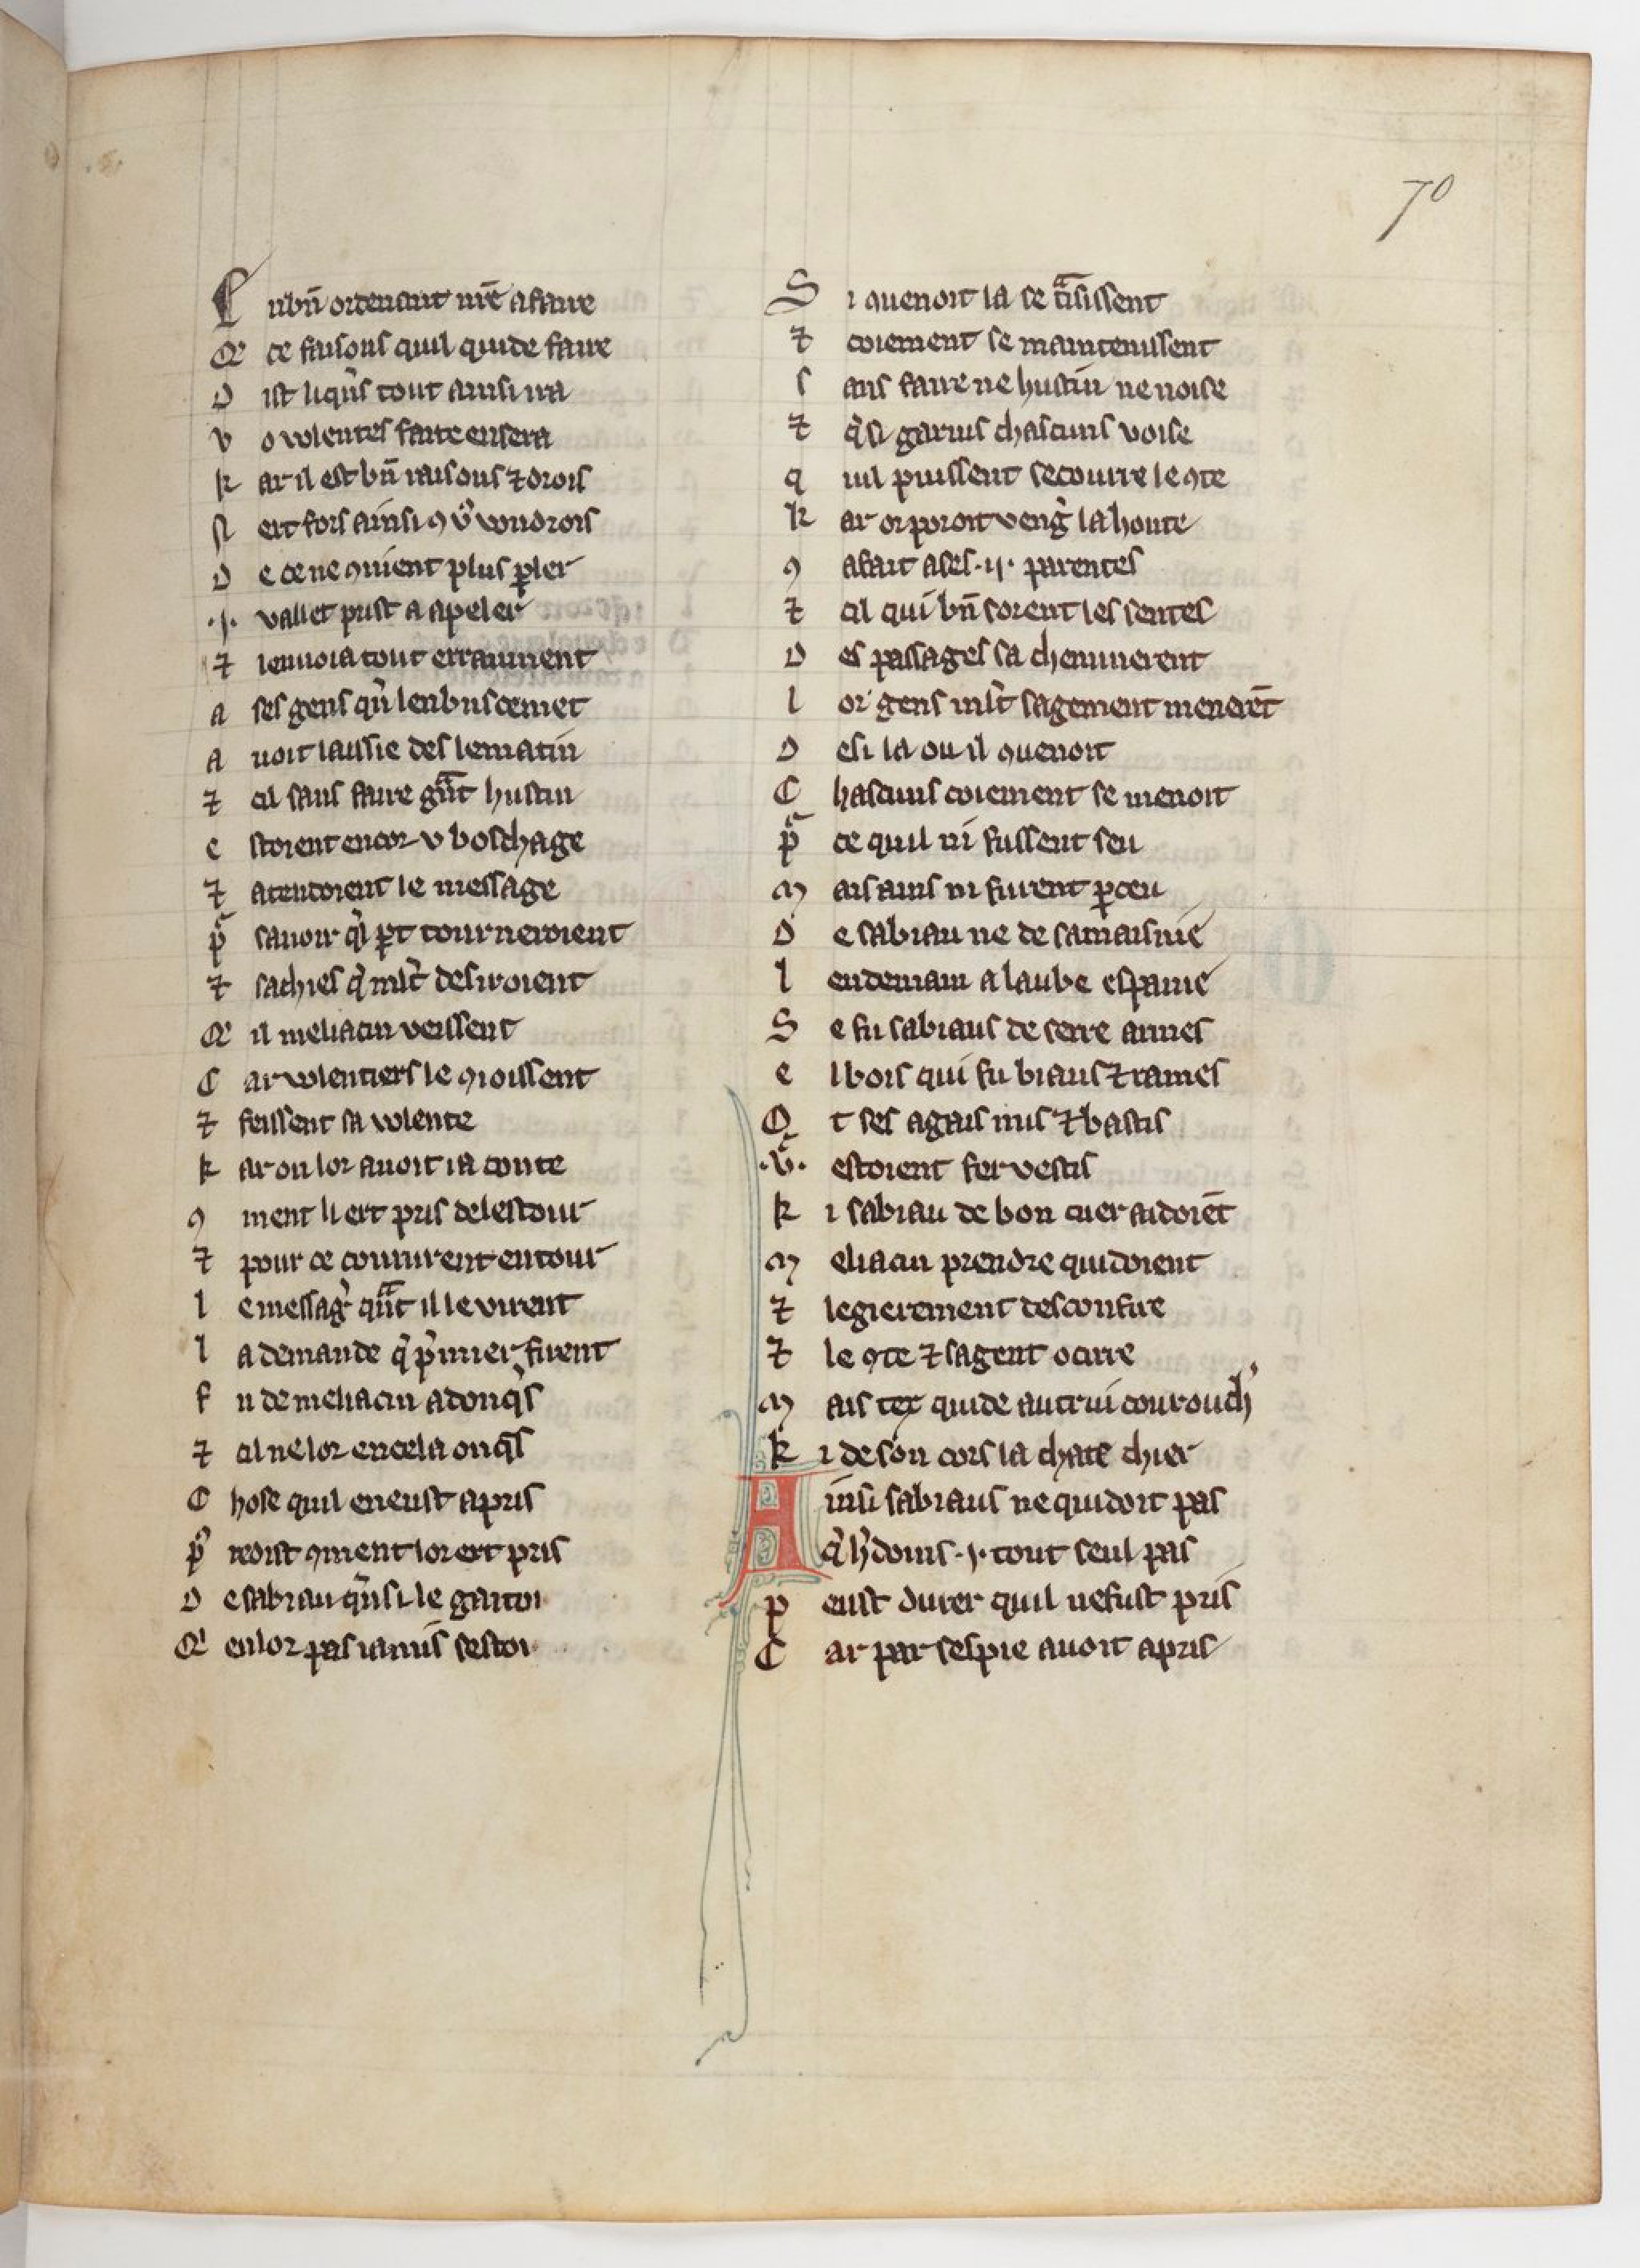 70
L ubñ ordenant nr̄e afaire
Q̃ ce faisons quil quide faire
D ist li qñs tout ainsi ira
V o volentes faite en sera
K ar il est bñ raisons ⁊ drois
N ert fors ainsi ꝯ vͦ voudrois
D e ce ne ꝯuient plus ꝑler
.j. vallet prist a apeler
⁊ lenuoia tout erraument
a ses gens qͥ lenbuscemet
A uoit laissie des le matin
⁊ cil sans faire gᵃnt hustin
e stoient encor v boschage
⁊ atendoient le message
pͬ sauoir qͥl ꝑt tourneroient
⁊ sachies qͥ ml̄t desiroient
Q̃ il meliacin veissent
C ar volentiers le ꝯioissent
⁊ feissent sa volente
K ar on lor auoit ia conte
ꝯ ment li ert pris de lestour
⁊ pour ce coururent entour
l e messagͬ qᵃnt il le virent
l a demande qͥ pͥmier firent
F u de meliacin adonqͣs
⁊ cil ne lor en cela onqͣs
C hose quil en eust apris
pͬ reoist ꝯment lor ert pris
D e sabrau qͥnsi le gaitoi
Q̃ en lor pas ia mis sestoi
S i ꝯuenoit la se tᵃisissent
⁊ coiement se maintenissent
s ans faire ne hustin ne noise
⁊ qͥsi garnis chascuns voise
q uil puissent secourre le ꝯte
K ar or poroit vengͬ la honte
ꝯ a fait a ses .ij. parentes
⁊ cil qui bñ sorent les sentes
D es passages sa cheminerent
l or gens ml̄t sagement menerēt
D esi la ou il ꝯuenoit
C hascuns coiement se menoit
pͬ ce quil ni fussent seu
M ais ains ni furent ꝑceu
D e sabrau ne de sa maisnie
l endemain a laube espanie
S e fu sabraus de serre armes
e l bois qui fu biaus ⁊ rames
Q̃ t ses agais mis ⁊ bastis
.vͨ. estoient fervestis
K i sabrau de bon cuer aidoiēt
M eliacin prendre quidoient
⁊ legierement desconfire
⁊ le ꝯte ⁊ sa gent ocirre
M ais tex quide autrui courouchͬ
K i de son cors la chate chier
A insi sabraus ne quidoit pas
qͥ hͦ dous .j. tout seul pas
P eust durer quil ne fust pris
C ar par sespie auoit apris